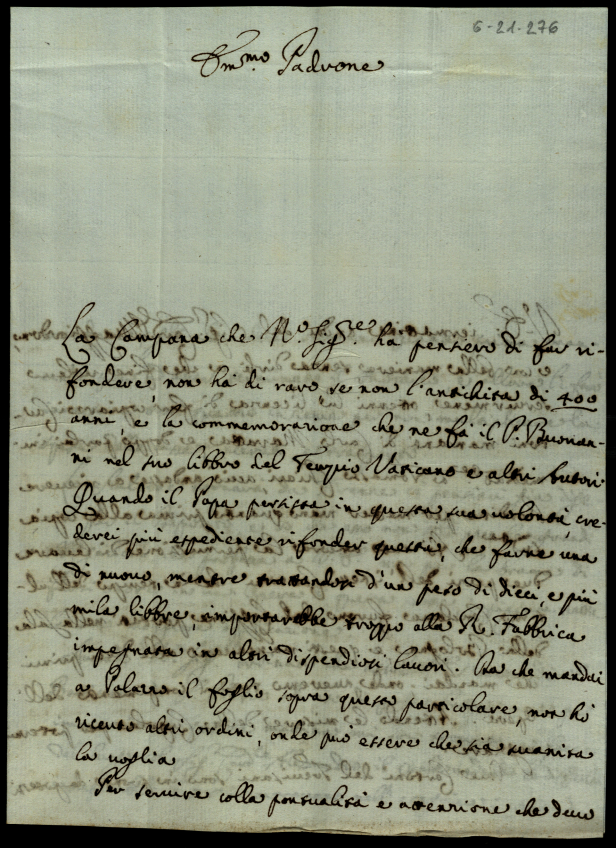 6-21-276
Em.mo Padrone
La Campana che N.o Sig.re ha pensiero di far ri-
fondere, non hà di raro se non l'antichità di 400
anni, e la commemorazione che ne fà il P. Buonan-
ni nel suo libbro del Tempio Vaticano e altri Autori
Quando il Papa persista in questa sua volontà, cre-
derei più espediente rifonder questa, che farne una
di nuovo, mentre trattandosi d'un peso di dieci, e più
mila libbre, importarebbe troppo alla R. Fabbrica
impegnata in altri dispendiosi lavori. Da che mandai
a Palazzo il foglio sopra questo particolare, non hò
ricevuto altri ordini, onde può essere che sia svanita
la voglia
Per servire colla pontualità e attenzione che devo